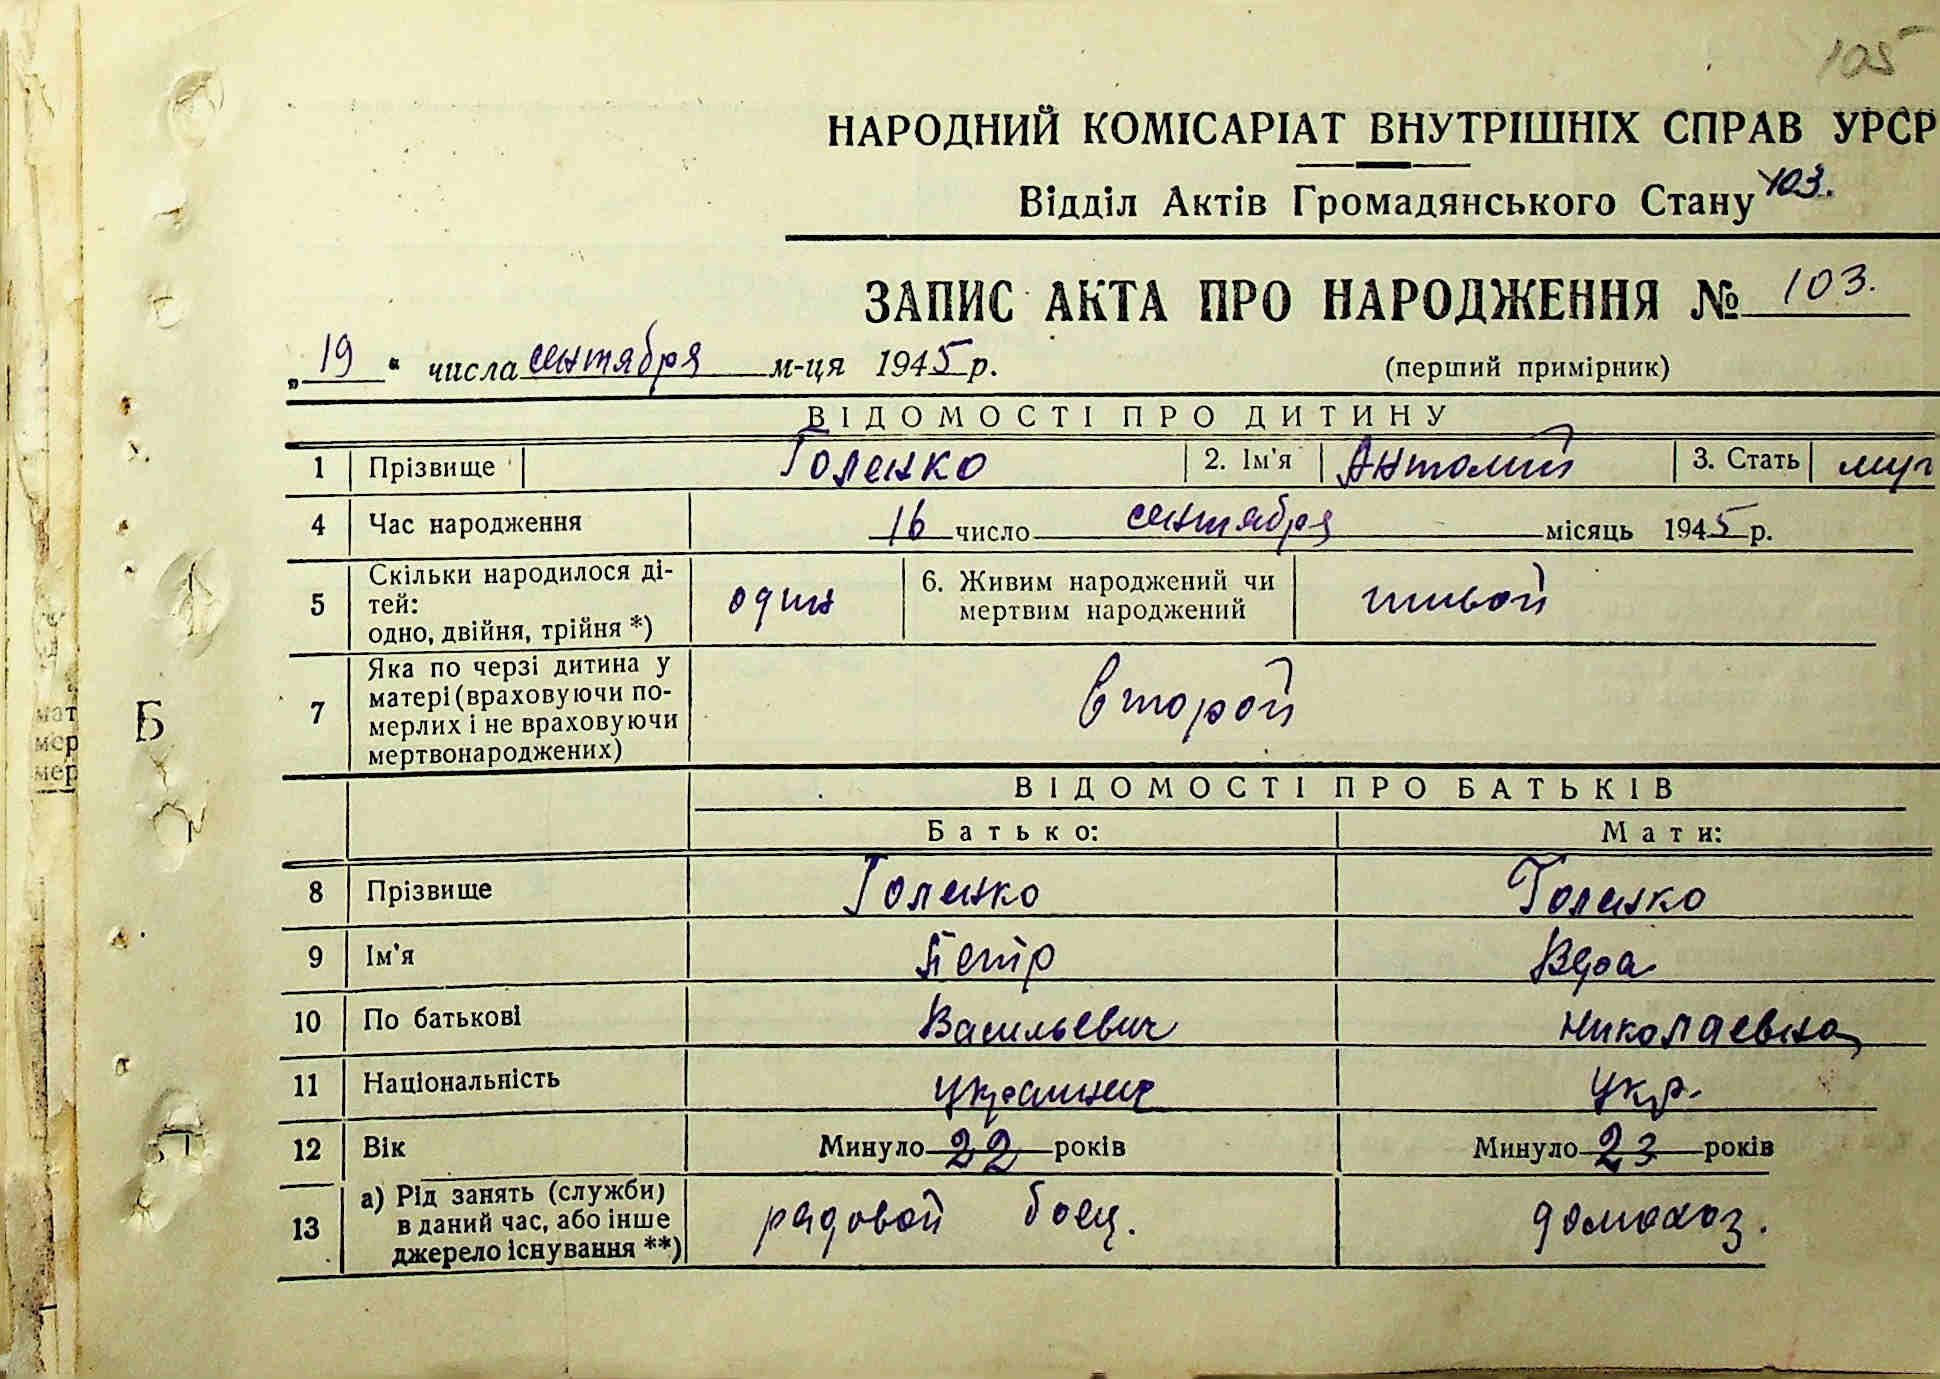 105
НАРОДНИЙ КОМІСАРІАТ ВНУТРІШНІХ СПРАВ УРСР
Відділ Актів Громадянського Стану 103.
ЗАПИС АКТА ПРО НАРОДЖЕННЯ № 103.
„19“ числа сентября м-ця 1945 р. (перший примірник)
ВІДОМОСТІ ПРО ДИТИНУ
1 Прізвище Голенко 2. Ім'я Антолий 3. Стать муж
4 Час народження 16 число сентября місяць 1945 р.
5 Скільки народилося ді-
тей:
одно, двійня, трійня *) один 6. Живим народжений чи
мертвим народжений живой
7 Яка по черзі дитина у
матері (враховуючи по-
мерлих і не враховуючи
мертвонароджених) второй
ВІДОМОСТІ ПРО БАТЬКІВ
Батько: Мати:
8 Прізвище Голенко Голенко
9 Ім'я Петр Вера
10 По батькові Васильевич Николаевна
11 Національність украинец укр.
12 Вік Минуло 22 років Минуло 23 років
13 а) Рід занять (служби)
в даний час, або інше
джерело існування **) рядовой боец. домохоз.
Б
мат
мер
мер